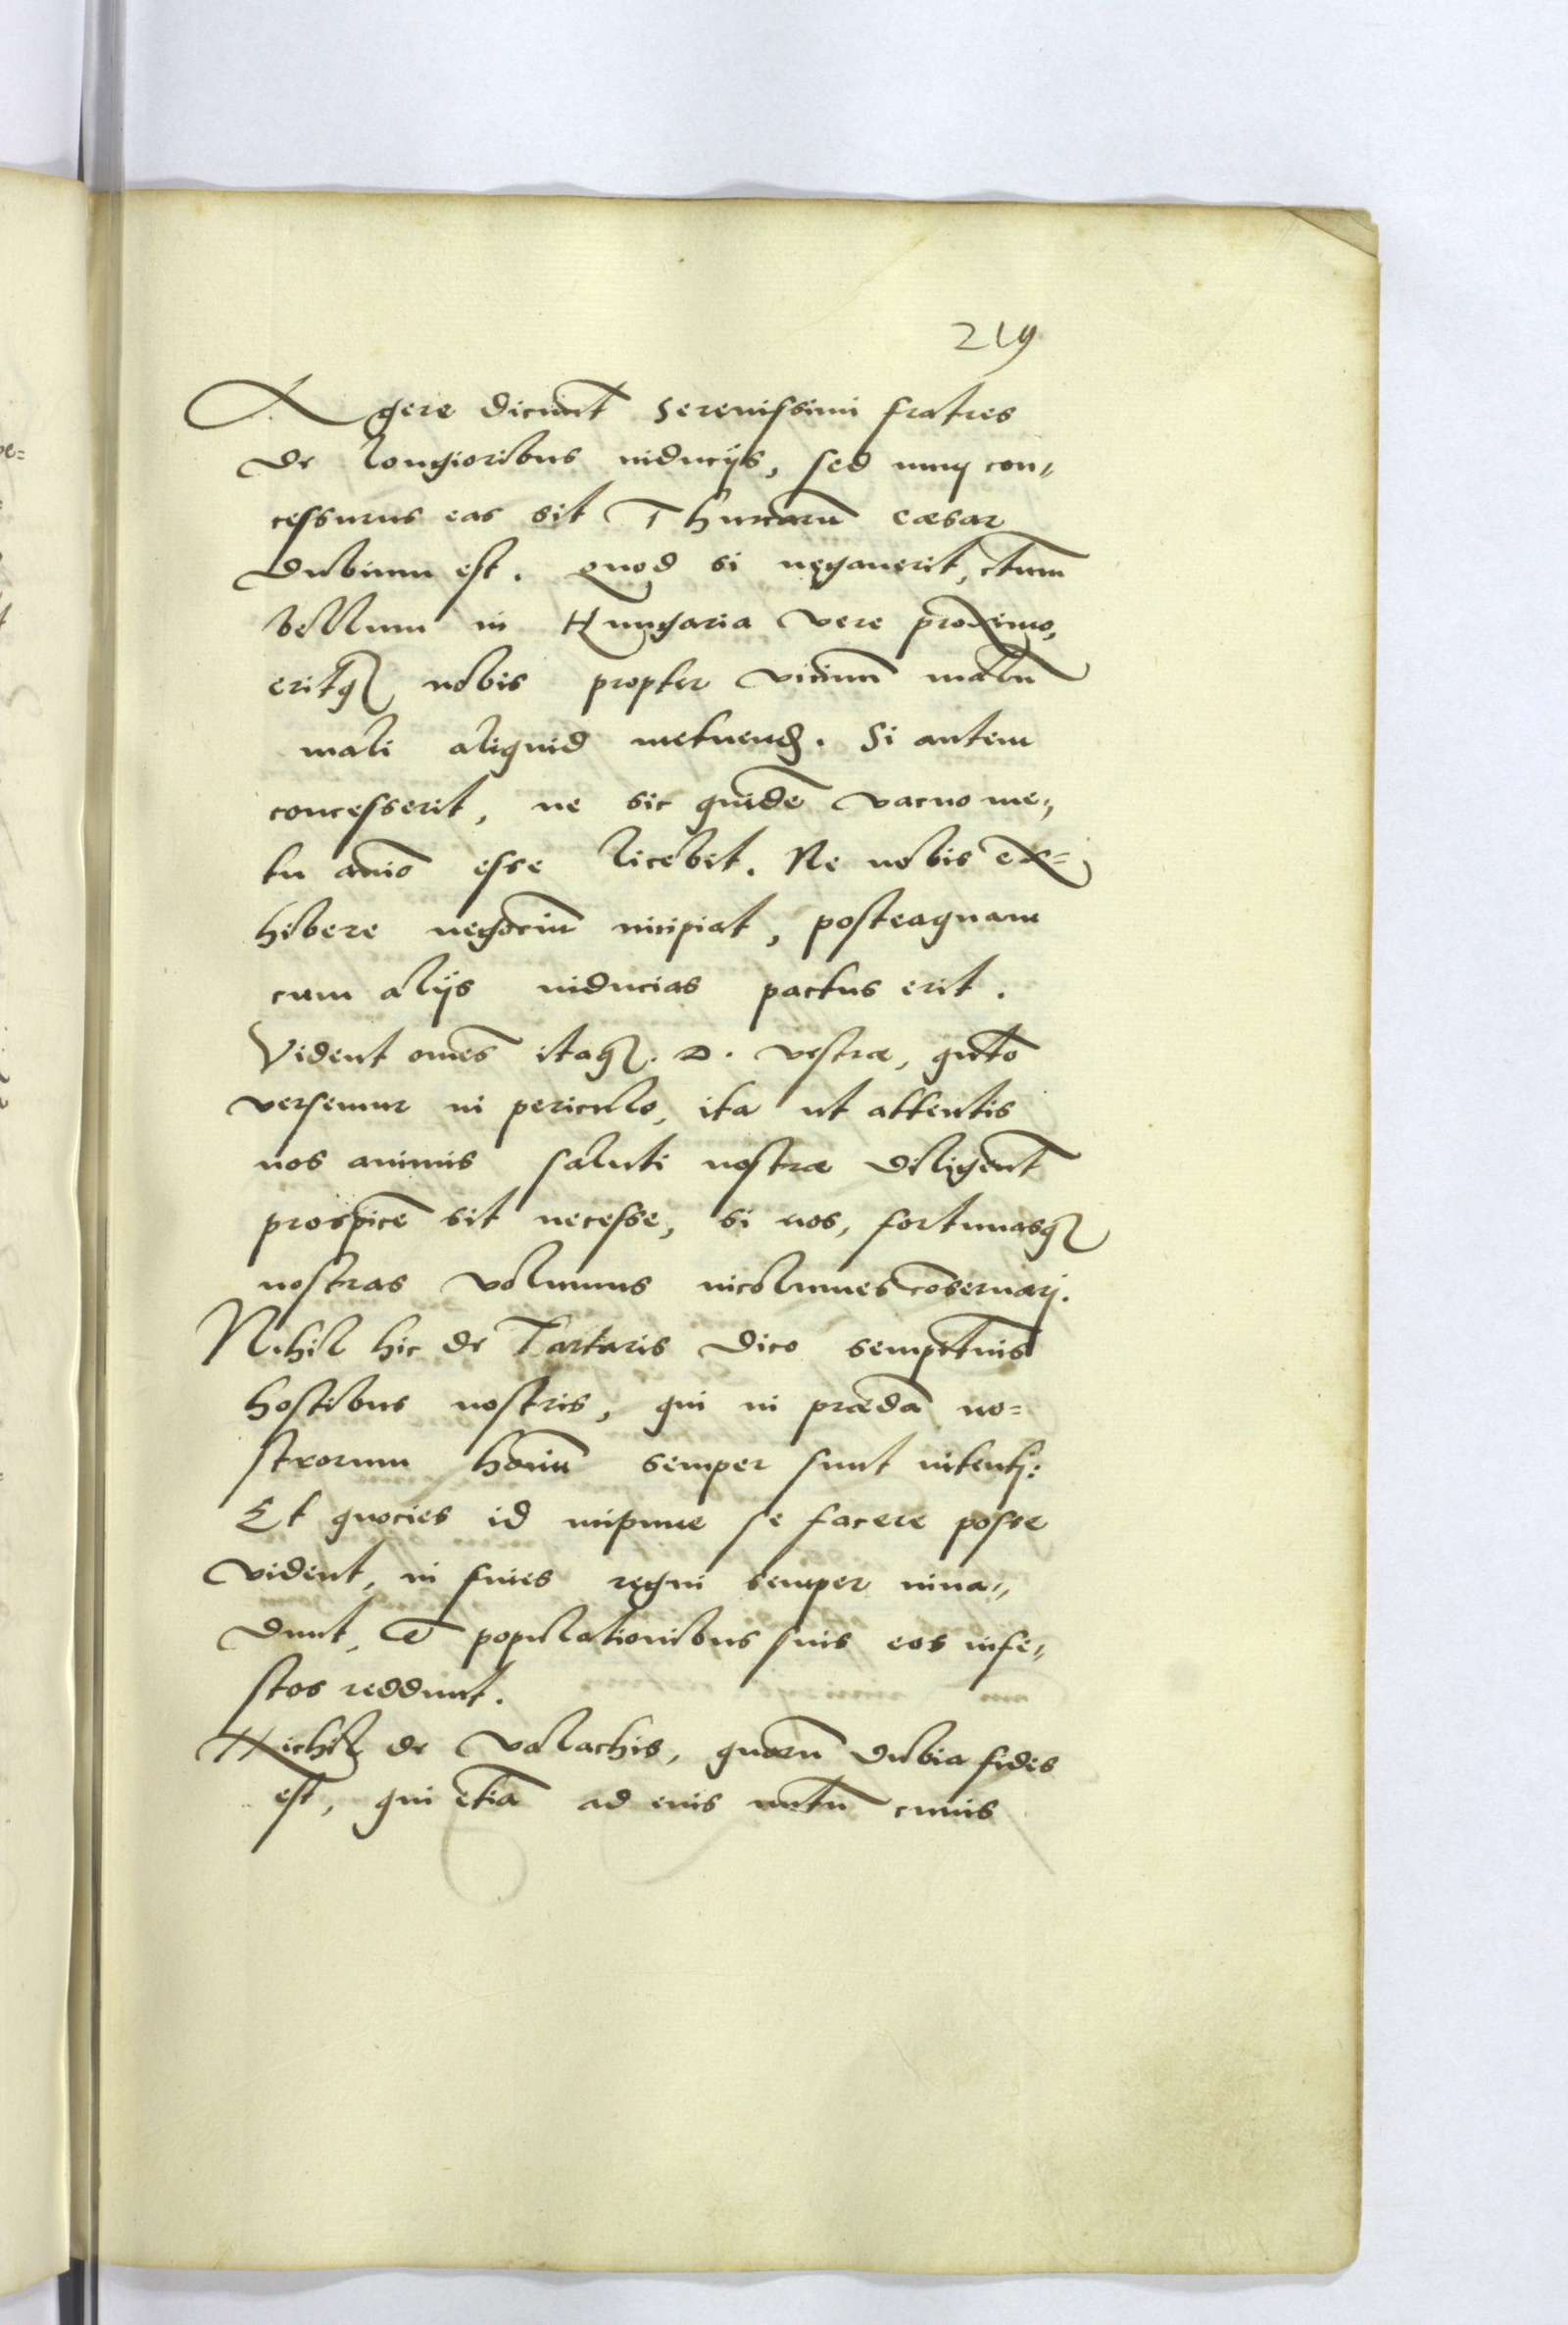 219
Agere dicunt Serenissimi fratres
de longioribus inducijs, sed num con„
cessurus eas sit Thurcarū Cæsar
dubium est. Quod si negauerit, tum
bellum in Hungaria vere proximo,
eritq3 nobis propter vicinū malū
mali aliquid metuend. Si autem
concesserit, ne sic quidē vacuo me„
tu anīo esse licebit. Ne nobis ex=
hibere negociū incipiat, posteaquam
cum alijs inducias pactus erit.
Vident om̄es itaq3. D. vestræ, q̄to
versemur in periculo, ita ut attentis
nos animis saluti nostræ diligent
prospicē sit necesse, si nos, fortunasq3
nostras volumus incolumes cōseruarj.
Nihil hic de Tartaris dico sempetuis
hostibus nostris, qui in prædā no=
strorum hoīum semper sunt intentj:
Et quocies id impune se facere posse
vident, in fines regni semper inua„
dunt, et populationibus suis eos infe„
stos reddunt.
Nichil de Valachis, quorū dubia fides
est, qui etiā ad eius nutū cuius